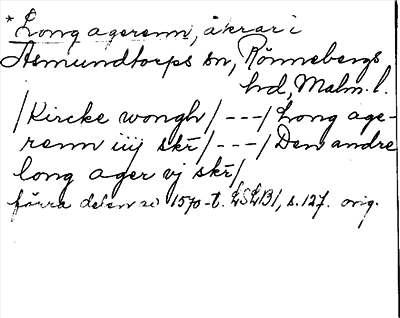 * Long agerenn, åkrar i
Asmundtorps sn, Rönnebergs
hd, Malm. l.
/Kircke wongh/ - - - / Long age-
renn iiij skr/ - - - / Den andre
long ager vj skr/
förra delen av 1570-t. LSLB1, s. 127. orig.